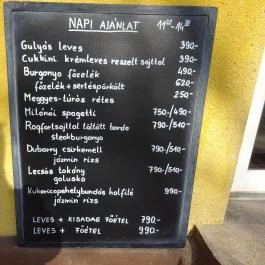 NAPI AJÁNLAT 11⁰⁰-14³⁰
Gulyás leves 390-
Cukkini krémleves reszelt sajttal 390-
Burgonya főzelék 490-
főzelék + sertéspörkölt 620-
Meggyes-túrós rétes 250-
Milánói spagetti 750-/490-
Rogfortsajttal töltött borda 790-/510-
steakburgonya
Dubarry csirkemell 790-/510-
jázmin rizs
Lecsós tokány 790-/510-
galuska
Kukoricapehelybundás halfilé 990-
jázmin rizs
LEVES + KISADAG FŐÉTEL 790-
LEVES + FŐÉTEL 990-